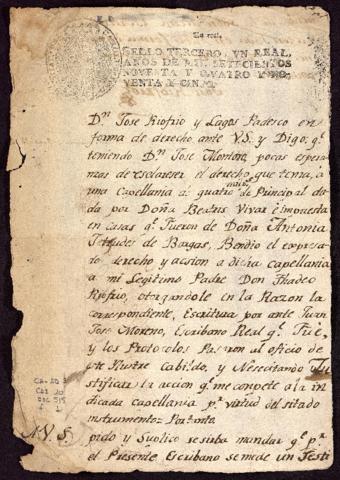 Un real.
SELLO TERCERO, VN REAL,
AÑOS DE MIL SETECIENTOS
NOVENTA Y QVATRO Y NO-
VENTA Y CINCO.
Dⁿ Jose Riofrio y Lagos Padesco en
forma de derecho ante V.S. y Digo: qᵉ
teniendo Dⁿ Jose Montero, pocas espera
nzas de esclareser el derecho que tenia, a
una Capellania de quatro mil pˢ de Principal da
da por Doña Beatris Vivar é impuesta
en casas qᵉ fueron de Doña Antonia
de Bargas, Bendio el expresa
do derecho y accion a dicha Capellania
a mi Legitimo Padre Don Thadeo
Riofrio, otorgandole en la Razon la
correspondiente, Escritura por ante Juan
Jose Moreno, Escribano Real qᵉ Fue,
y los Protocolos Pasaron al oficio de
Ilustre Cabildo, y Nesecitando Ju
stificar la accion qᵉ me compete á la in
dicada capellania pʳ virtud del sitado
instrumento: Por tanto
A V.S. pido y Suplico se sirba mandar qᵉ pʳ
el Presente Escribano se me dé un Testi